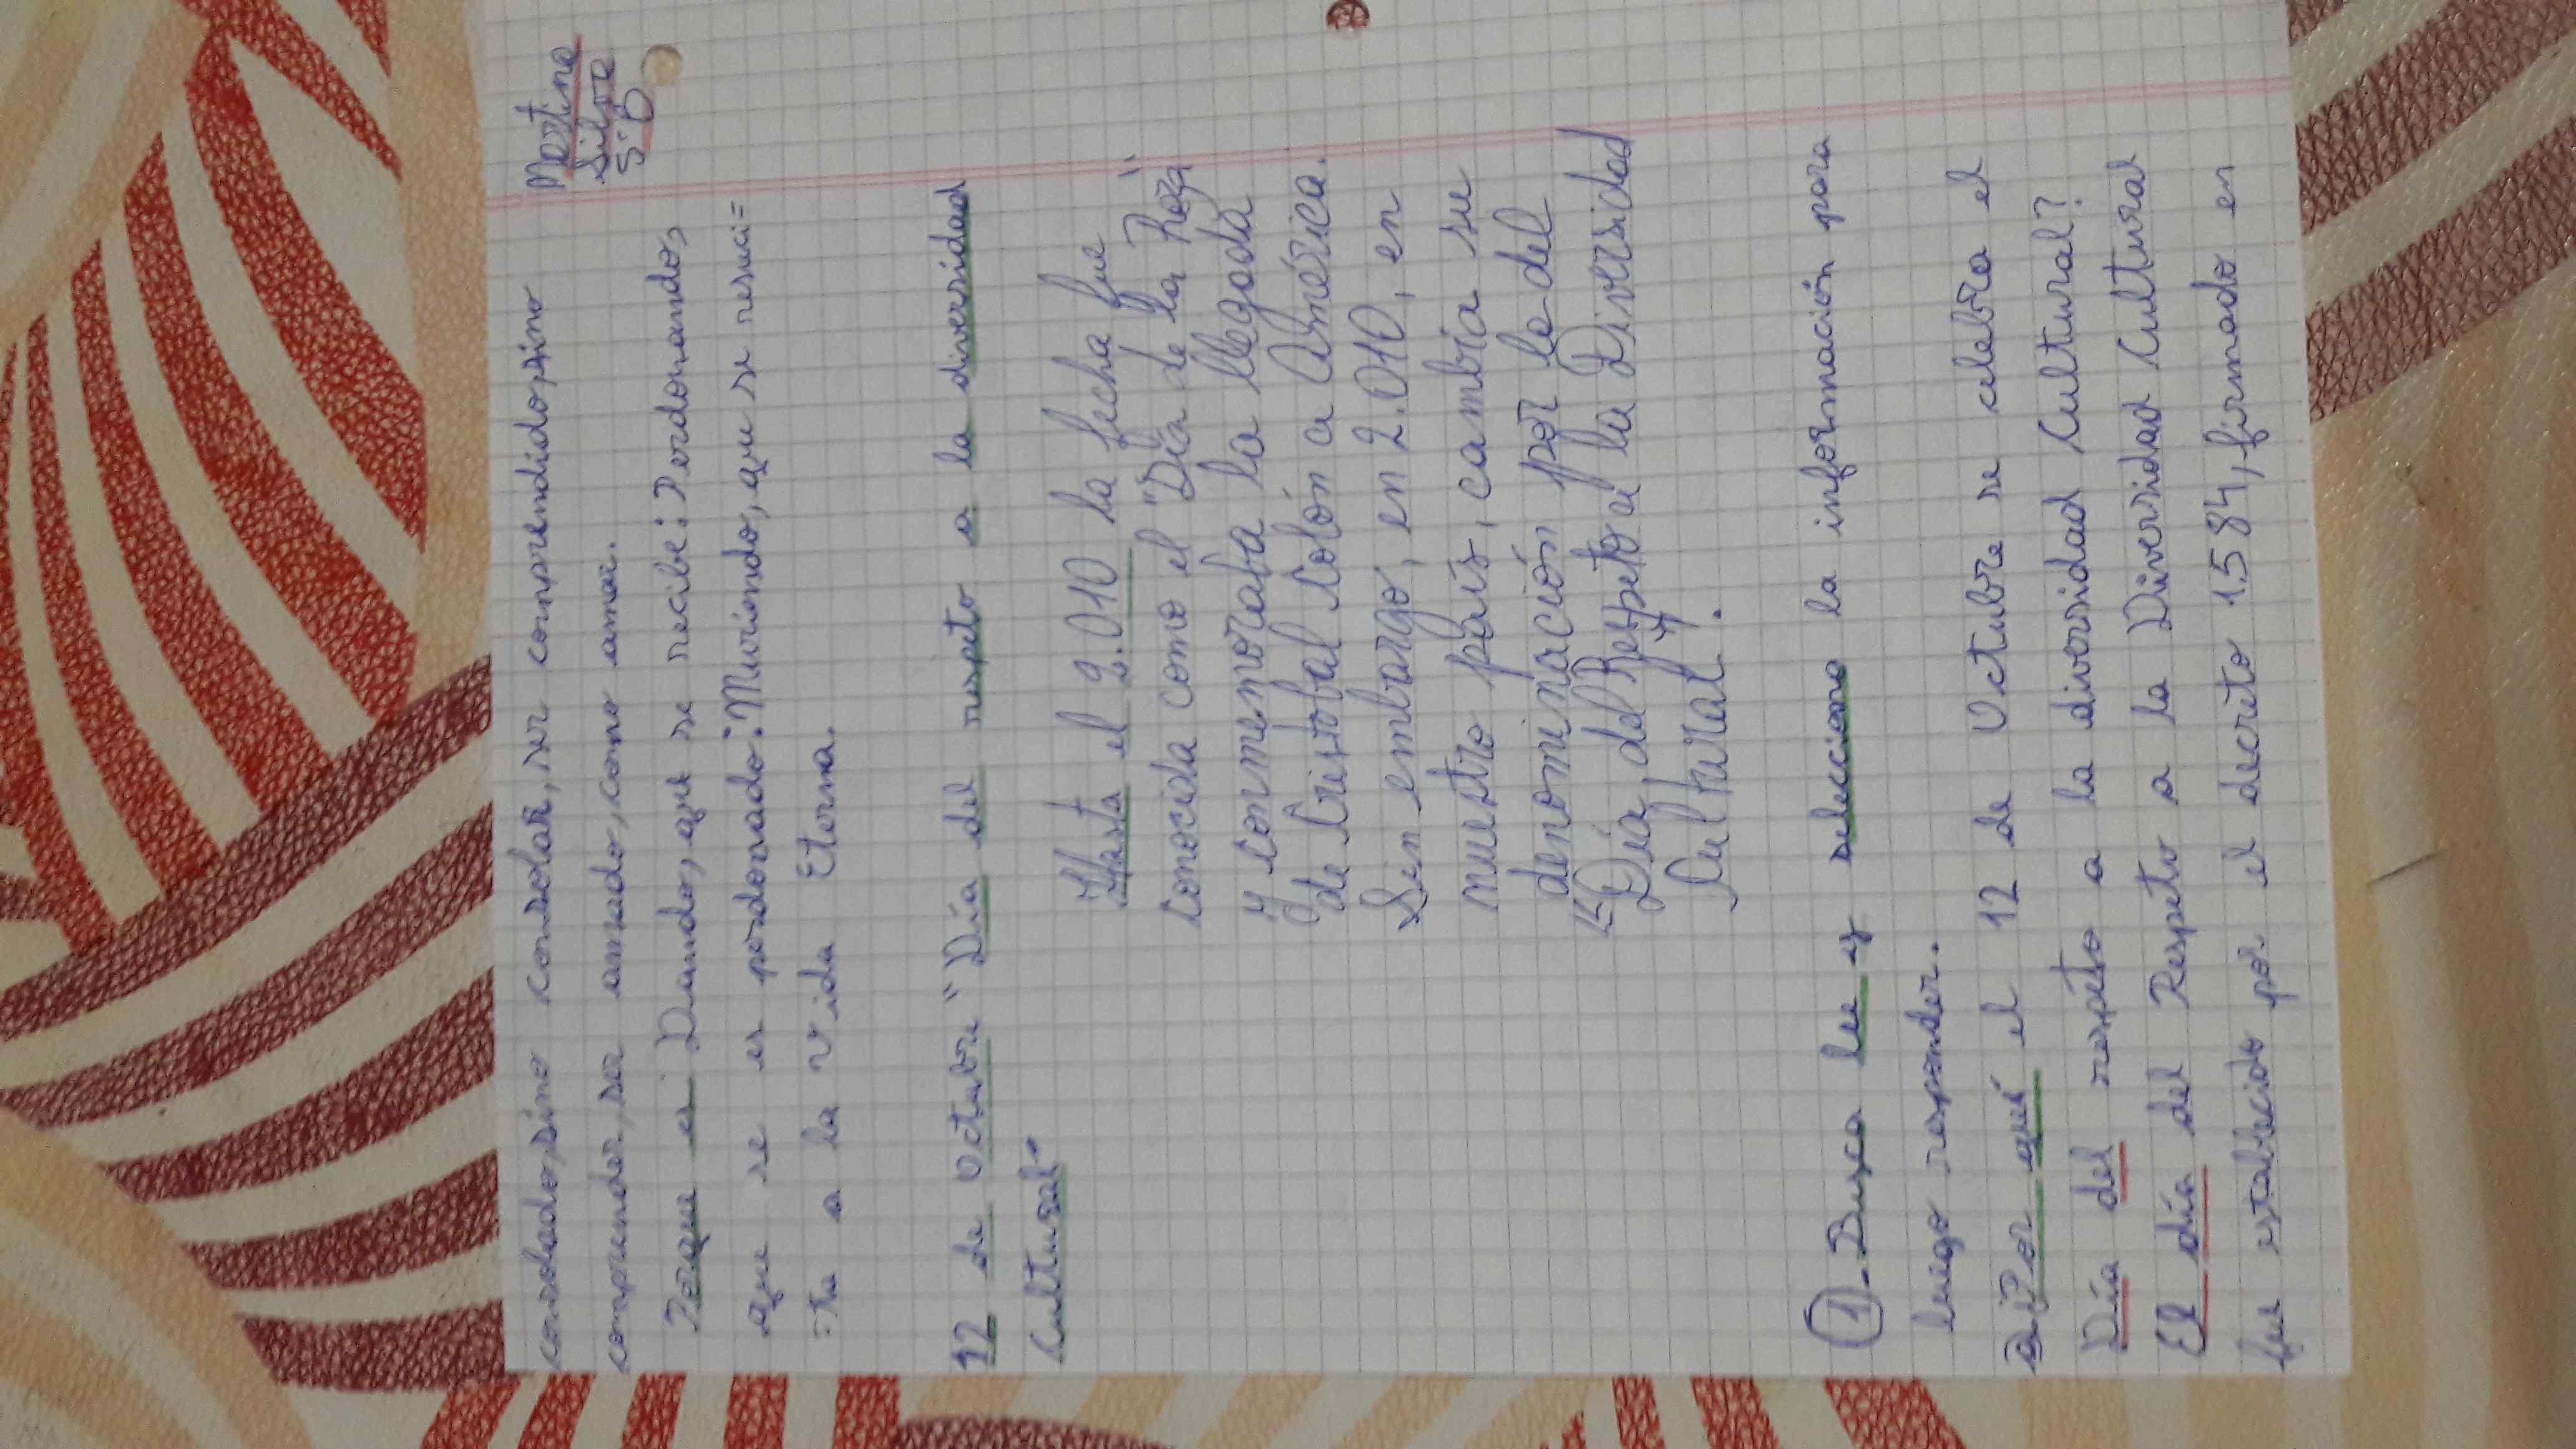 Martina
Silva
5ºB
consolado,sino consolar, ser comprendido,sino
comprender, ser amado, como amar.
Porque es Dando, que se recibe: Perdonando,
que se es perdonado: Muriendo, que se resuci=
=ta a la vida Eterna.
12 de Octubre "Día del respeto a la diversidad
Cultural"
Hasta el 2.010 la fecha fue
conocida como el "Día de la Raza"
y conmemoraba la llegada
de Cristobal Colón a América.
Sin embargo, en 2.010, en
nuestro país, cambia su
denominación por la del
"Día del Respeto a la Diversidad
Cultural".
1- Busco leo y selecciono la información para
luego responder.
a¿Por qué el 12 de Octubre se celebra el
Día del respeto a la diversidad Cultural?
El día del Respeto a la Diversidad Cultural
fue establecido por el decreto 1.584, firmado en